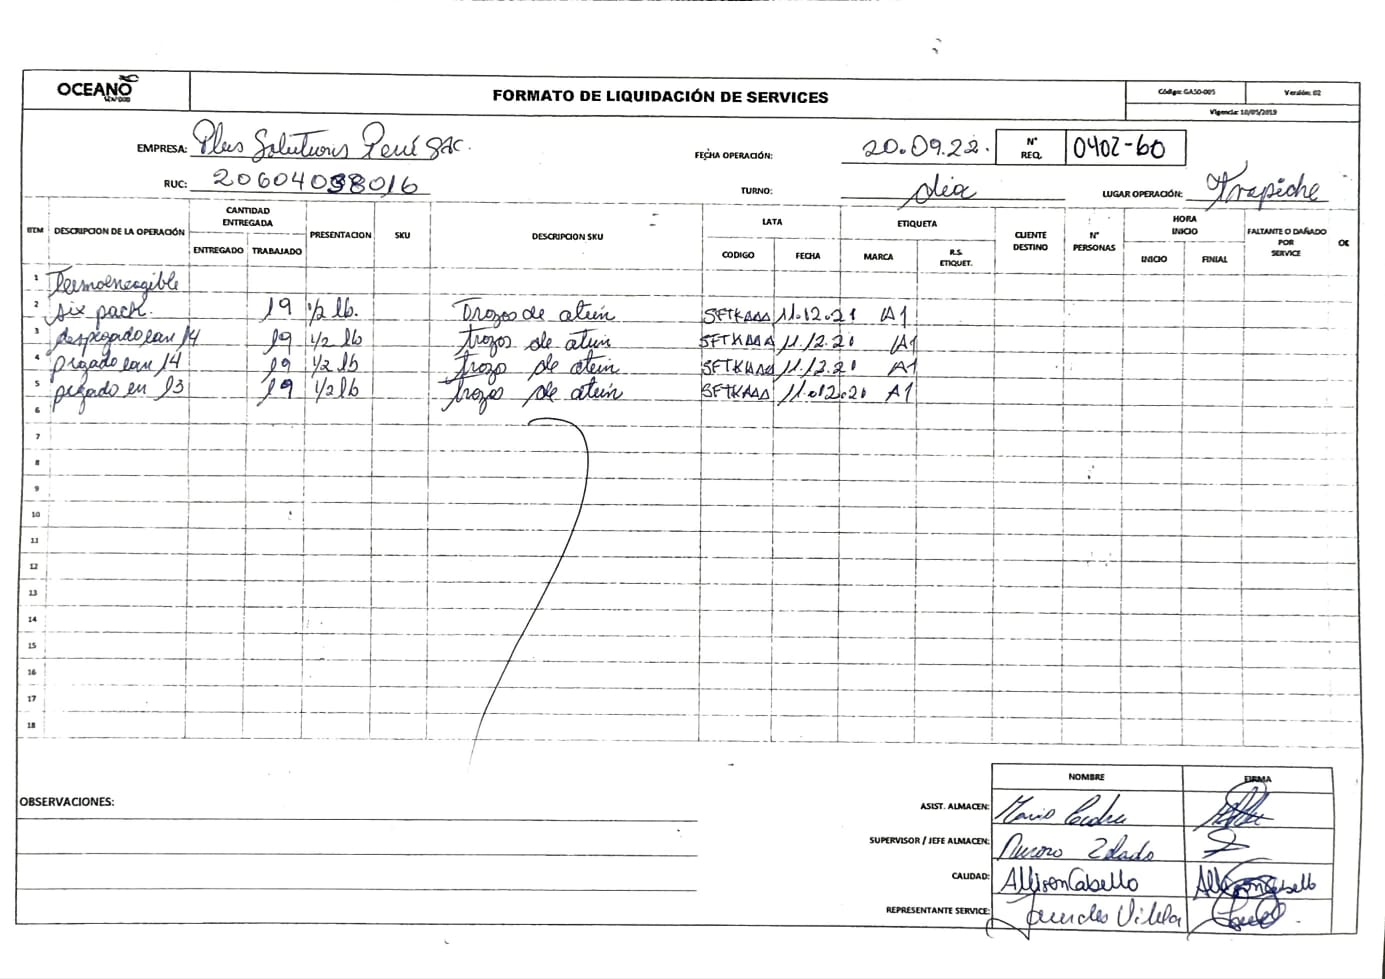 OCEANO
SEAFOOD
FORMATO DE LIQUIDACIÓN DE SERVICES
Código: GASO-005
Versión: 02
Vigencia: 10/05/2019
EMPRESA: Plus Solutions Perú SAC.
FECHA OPERACIÓN: 20.09.22.
N° REQ. 0402-60
RUC: 20604038016
TURNO: dia
LUGAR OPERACIÓN: Trapiche
ITEM DESCRIPCION DE LA OPERACIÓN CANTIDAD ENTREGADA ENTREGADO TRABAJADO PRESENTACION SKU DESCRIPCION SKU LATA CODIGO FECHA ETIQUETA MARCA R.S. ETIQUET. CLIENTE DESTINO N° PERSONAS HORA INICIO INICIO FINIAL FALTANTE O DAÑADO POR SERVICE
1 Termoencogible
2 six pack. 19 1/2 lb. Trozos de atún SFTKAAA 11.12.21 A1
3 despegado can 14 19 1/2 lb trozos de atun SFTKAAA 11.12.20 A1
4 pegado can 14 19 1/2 lb trozo de atún SFTKAAA 11.12.20 A1
5 pegado en 13 19 1/2 lb trozos de atún SFTKAAA 11.012.20 A1
6
7
8
9
10
11
12
13
14
15
16
17
18
NOMBRE FIRMA
OBSERVACIONES:
ASIST. ALMACEN: Mario
SUPERVISOR / JEFE ALMACEN:
CALIDAD: Allison Cabello Allison Cabello
REPRESENTANTE SERVICE: Vilela